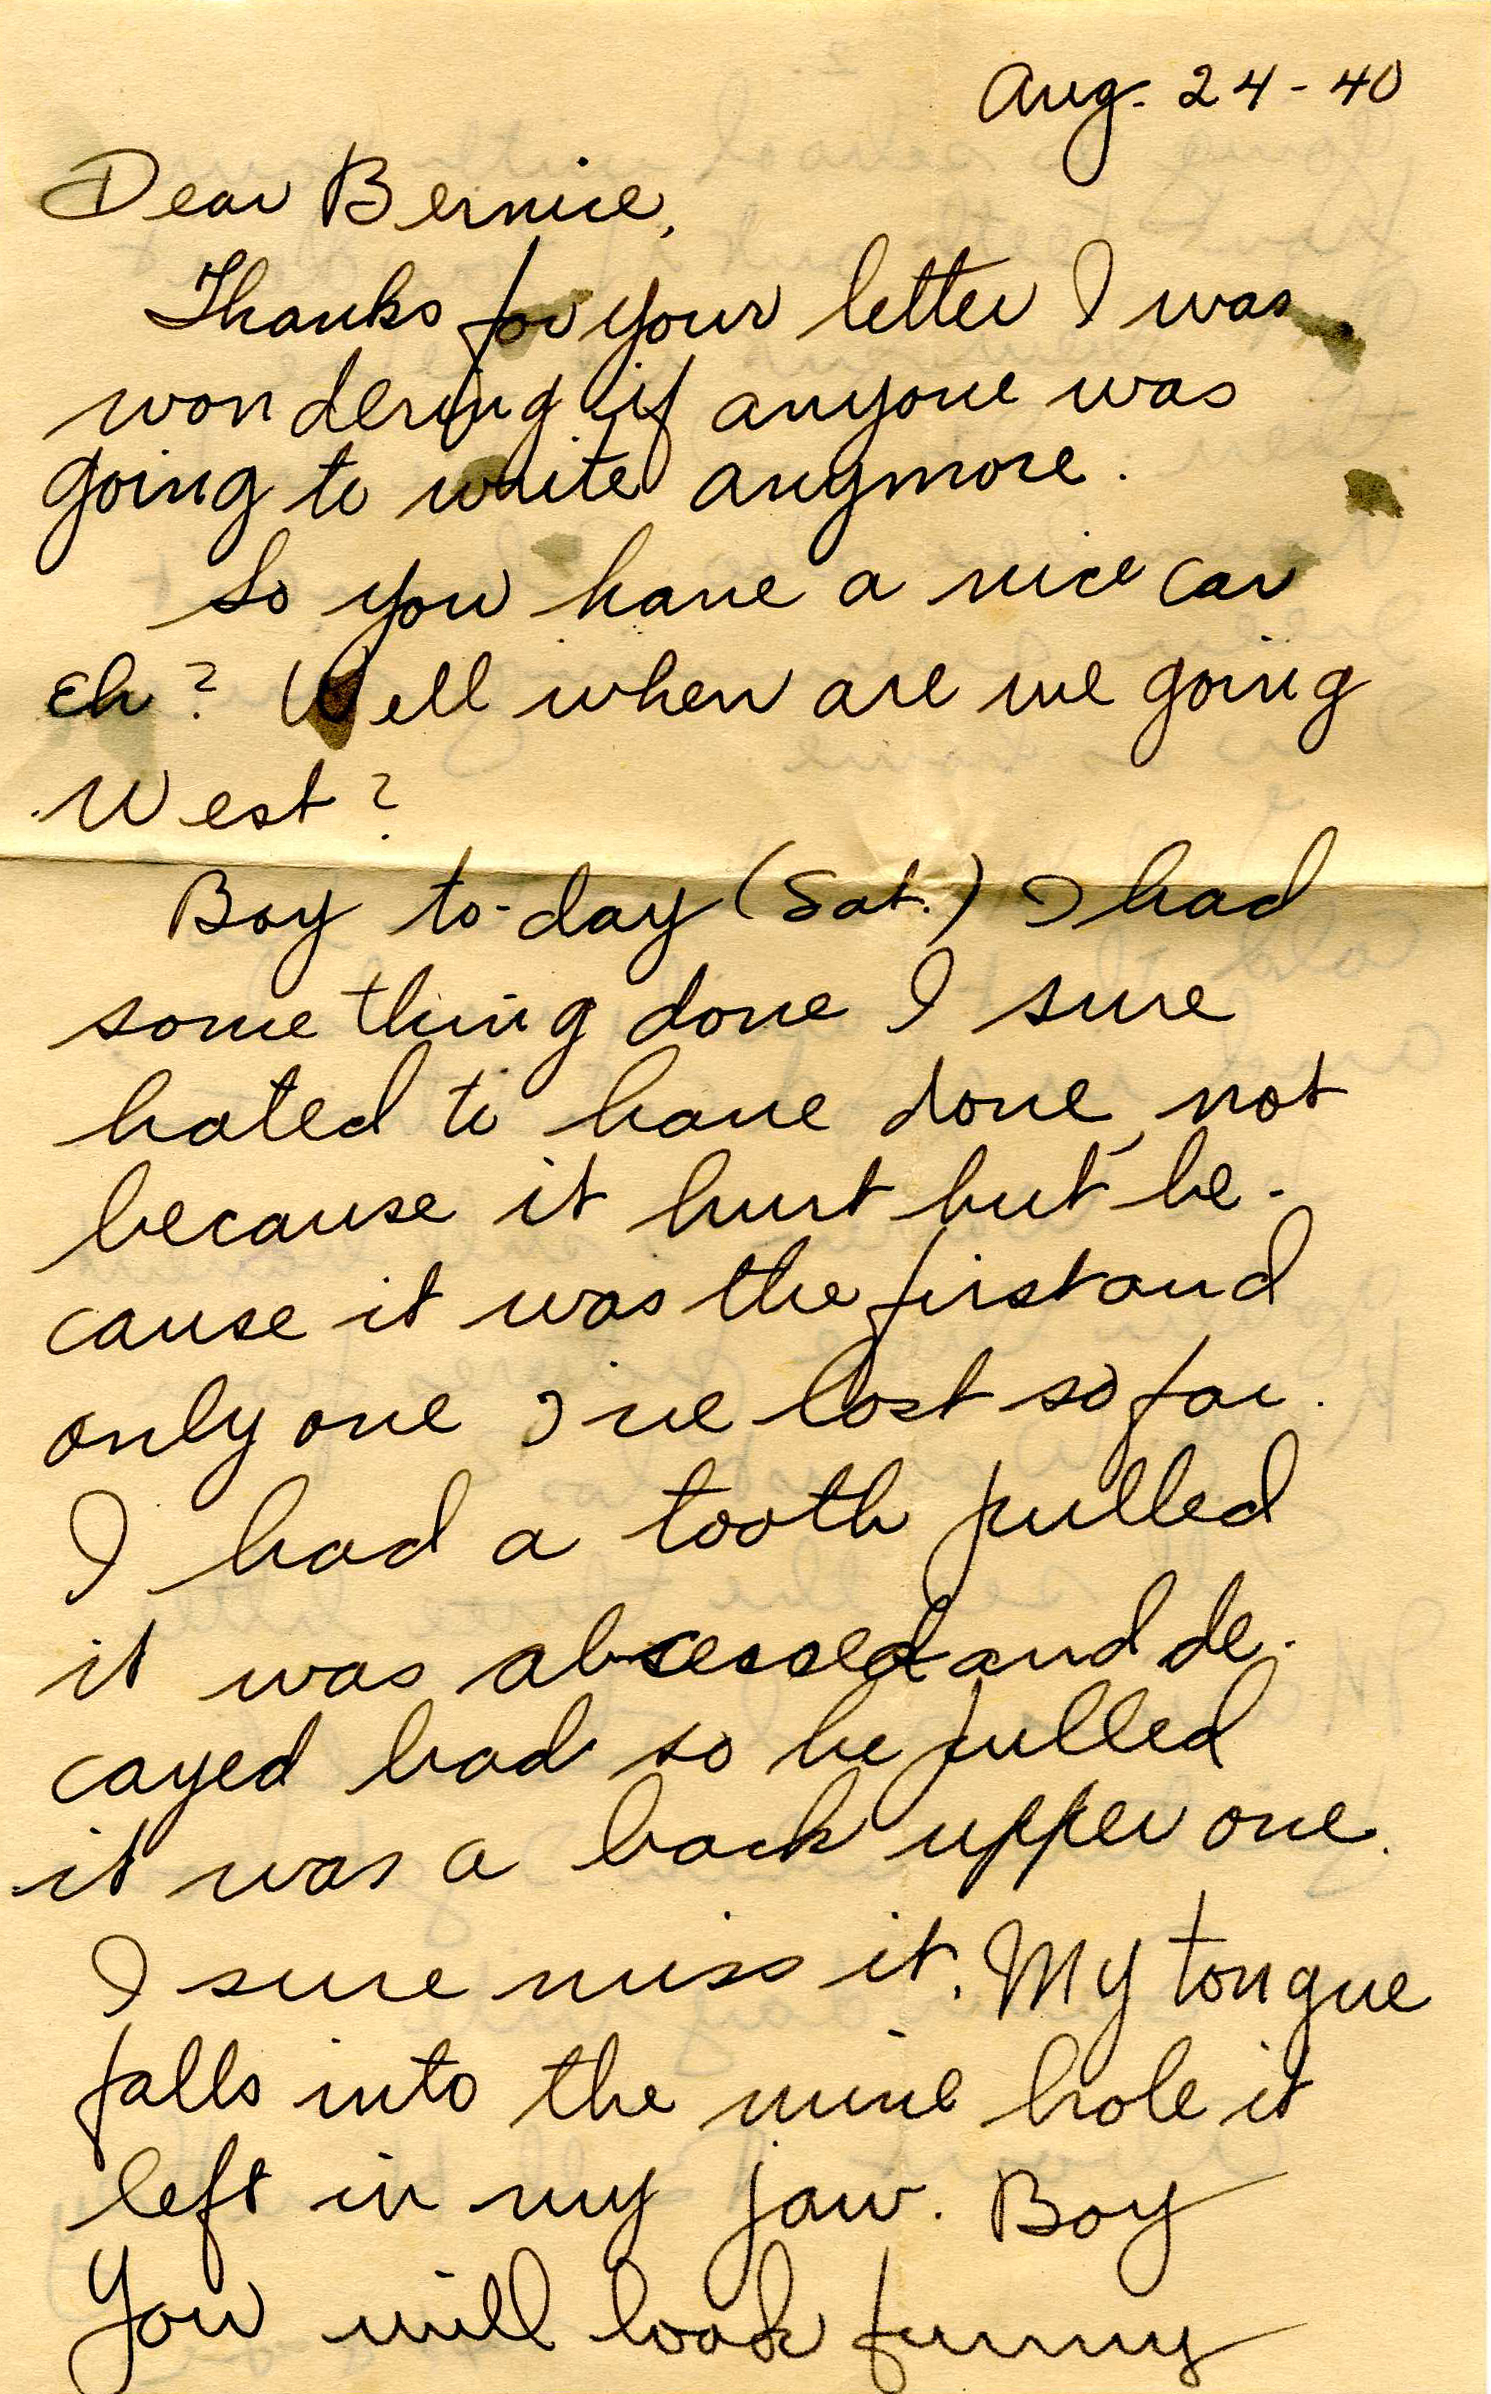 Aug. 24-40
Dear Bernice,
Thanks for your letter I was
wondering if anyone was
going to write anymore.
So you have a nice car
Eh? Well when are we going
West?
Boy to-day (Sat.) I had
something done I sure
hated to have done, not
because it hurt but be-
cause it was the first and
only one I've lost so far.
I had a tooth pulled
it was abscessed and de-
cayed bad so he pulled
it was a back upper one.
I sure miss it. My tongue
falls into the mine hole it
left in my jaw. Boy
You will look funny